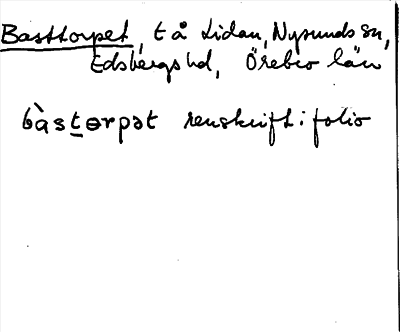 Basttorpet, t å Lidan, Nysunds sn,
Edsbergs hd, Örebro län
bàstɵrpət renskrift i folio